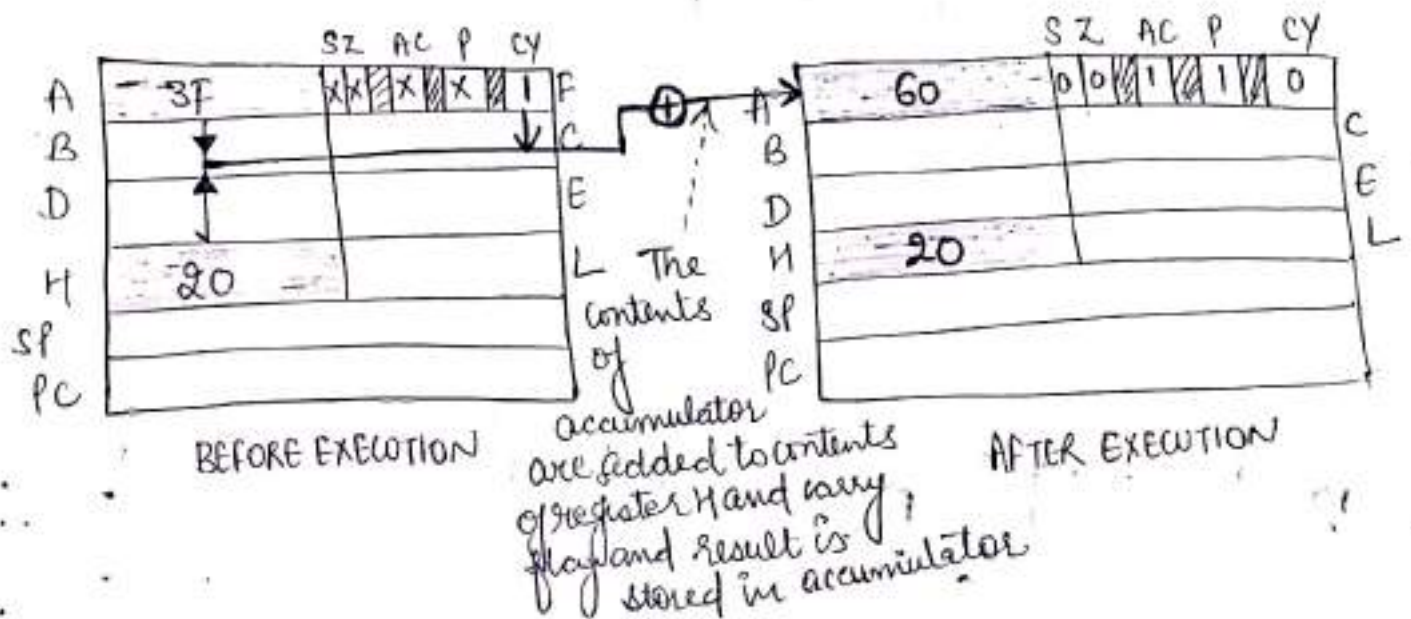 S Z AC P CY
A 3F X X X X 1 F
B C
D E
H 20 L
SP
PC
BEFORE EXECUTION
+
The
contents
of
accumulator
are added to contents
of register H and carry
flag and result is
stored in accumulator
S Z AC P CY
A 60 0 0 1 1 0
B C
D E
H 20 L
SP
PC
AFTER EXECUTION